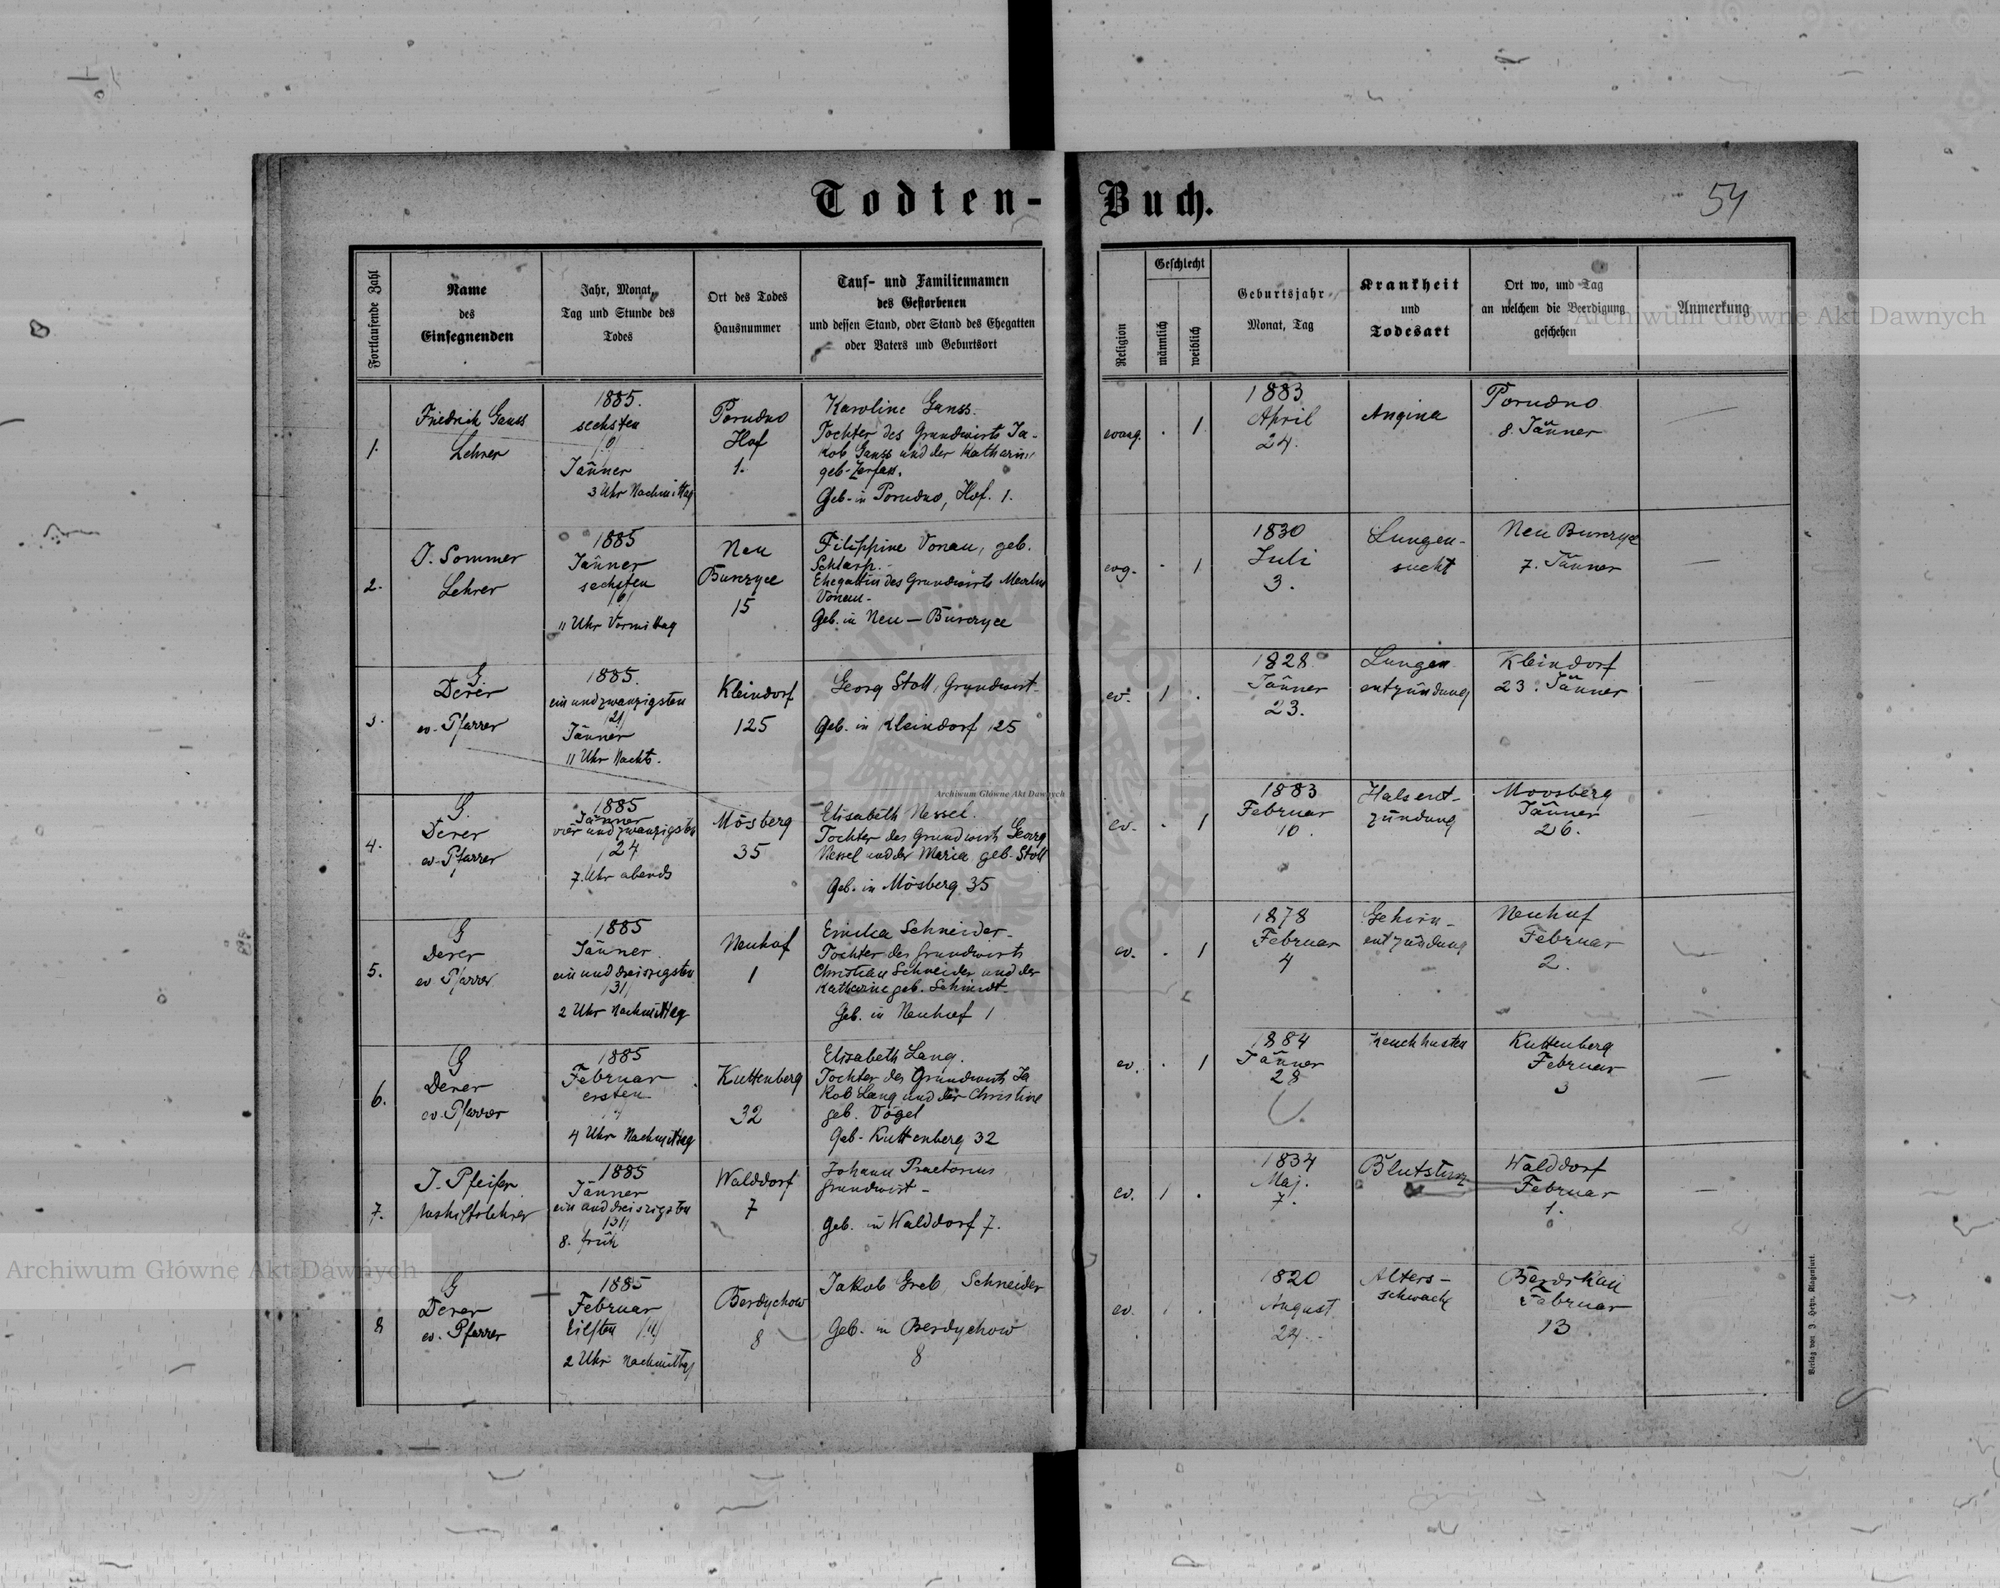 Todten-Buch.
54
Fortlaufende Zahl
Name
des
Einsegnenden
Jahr, Monat,
Tag und Stunde des
Todes
Ort des Todes
Hausnummer
Tauf- und Familiennamen
des Gestorbenen
und dessen Stand, oder Stand des Ehegatten
oder Vaters und Geburtsort
Religion
Geschlecht
männlich
weiblich
Geburtsjahr
Monat, Tag
Krankheit
und
Todesart
Ort wo, und Tag
an welchem die Beerdigung
geschehen
Anmerkung
1.
Friedrich Ganss
Lehrer
1885.
sechsten
/6/
Jänner
3 Uhr Nachmittag
Porudno
Hof
1.
Karoline Ganss.
Tochter des Grundwirts Ja-
kob Ganss und der Katharina
geb. Zerfass.
Geb. in Porudno, Hof. 1.
evang.
.
1
1883
April
24.
Angina
Porudno
8. Jänner
2.
J. Sommer
Lehrer
1885
Jänner
sechsten
/6/
11 Uhr Vormittag
Neu
Bunzyce
15
Filippine Vonau, geb.
Ehegattin des Grundwirts Martin
Vonau.
Geb. in Neu-Bunzyce
evg.
-
1
1830
Juli
3.
Lungen-
sucht
Neu Bunzyce
7. Jänner
3.
G.
Derer
ev. Pfarrer
1885.
ein und zwanzigsten
/21/
Jänner
11 Uhr Nachts.
Kleindorf
125
Georg Stoll, Grundwirt
Geb. in Kleindorf 125
ev.
1
.
1828
Jänner
23.
Lungen
entzündung
Kleindorf
23. Jänner
4.
G.
Derer
ev. Pfarrer
1885
Jänner
vier und zwanzigsten
/24
7. Uhr abends
Mösberg
35
Elisabeth Nessel.
Tochter des Grundwirts Georg
Nessel und der Maria geb. Stoll
Geb. in Mösberg 35
ev.
.
1
1883
Februar
10.
Halsent-
zündung
Moosberg
Jänner
26.
5.
G
Derer
ev Pfarrer
1885
Jänner.
ein und dreiszigsten
/31/
2 Uhr Nachmittag
Neuhof
1
Emilia Schneider-
Tochter des Grundwirts
Christian Schneider und der
Katharine geb. Schmidt.
Geb. in Neuhof 1
ev.
.
1
1878
Februar
4
Gehirn-
entzündung
Neuhof
Februar
2.
6.
G
Derer
ev. Pfarrer
1885
Februar
ersten
/1/
4 Uhr Nachmittag
Kuttenberg
32
Elisabeth Lang.
Tochter des Grundwirts Ja
kob Lang und der Christine
geb. Vogel
Geb. Kuttenberg 32
ev.
.
1
1884
Jänner
28
Keuchhusten
Kuttenberg
Februar
3
7.
J. Pfeifer
Aushilfslehrer
1885
Jänner
ein und dreiszigsten
/31/
8. früh
Walddorf
7
Johann Praetorius
Grundwirt-
geb. in Walddorf 7.
ev.
1
.
1834
Maj.
7.
Blutsturz
Walddorf
Februar
1.
8
G
Derer
ev. Pfarrer
1885
Februar
eilften /11/
2 Uhr Nachmittag
Berdychow
8
Jakob Greb, Schneider
Geb. in Berdychow
8
ev.
1
.
1820
August
24.
Alters-
schwach
Berdikau
Februar
13
Verlag von J. Heyn, Klagenfurt.
Archiwum Główne Akt Dawnych
Archiwum Główne Akt Dawnych
Archiwum Główne Akt Dawnych